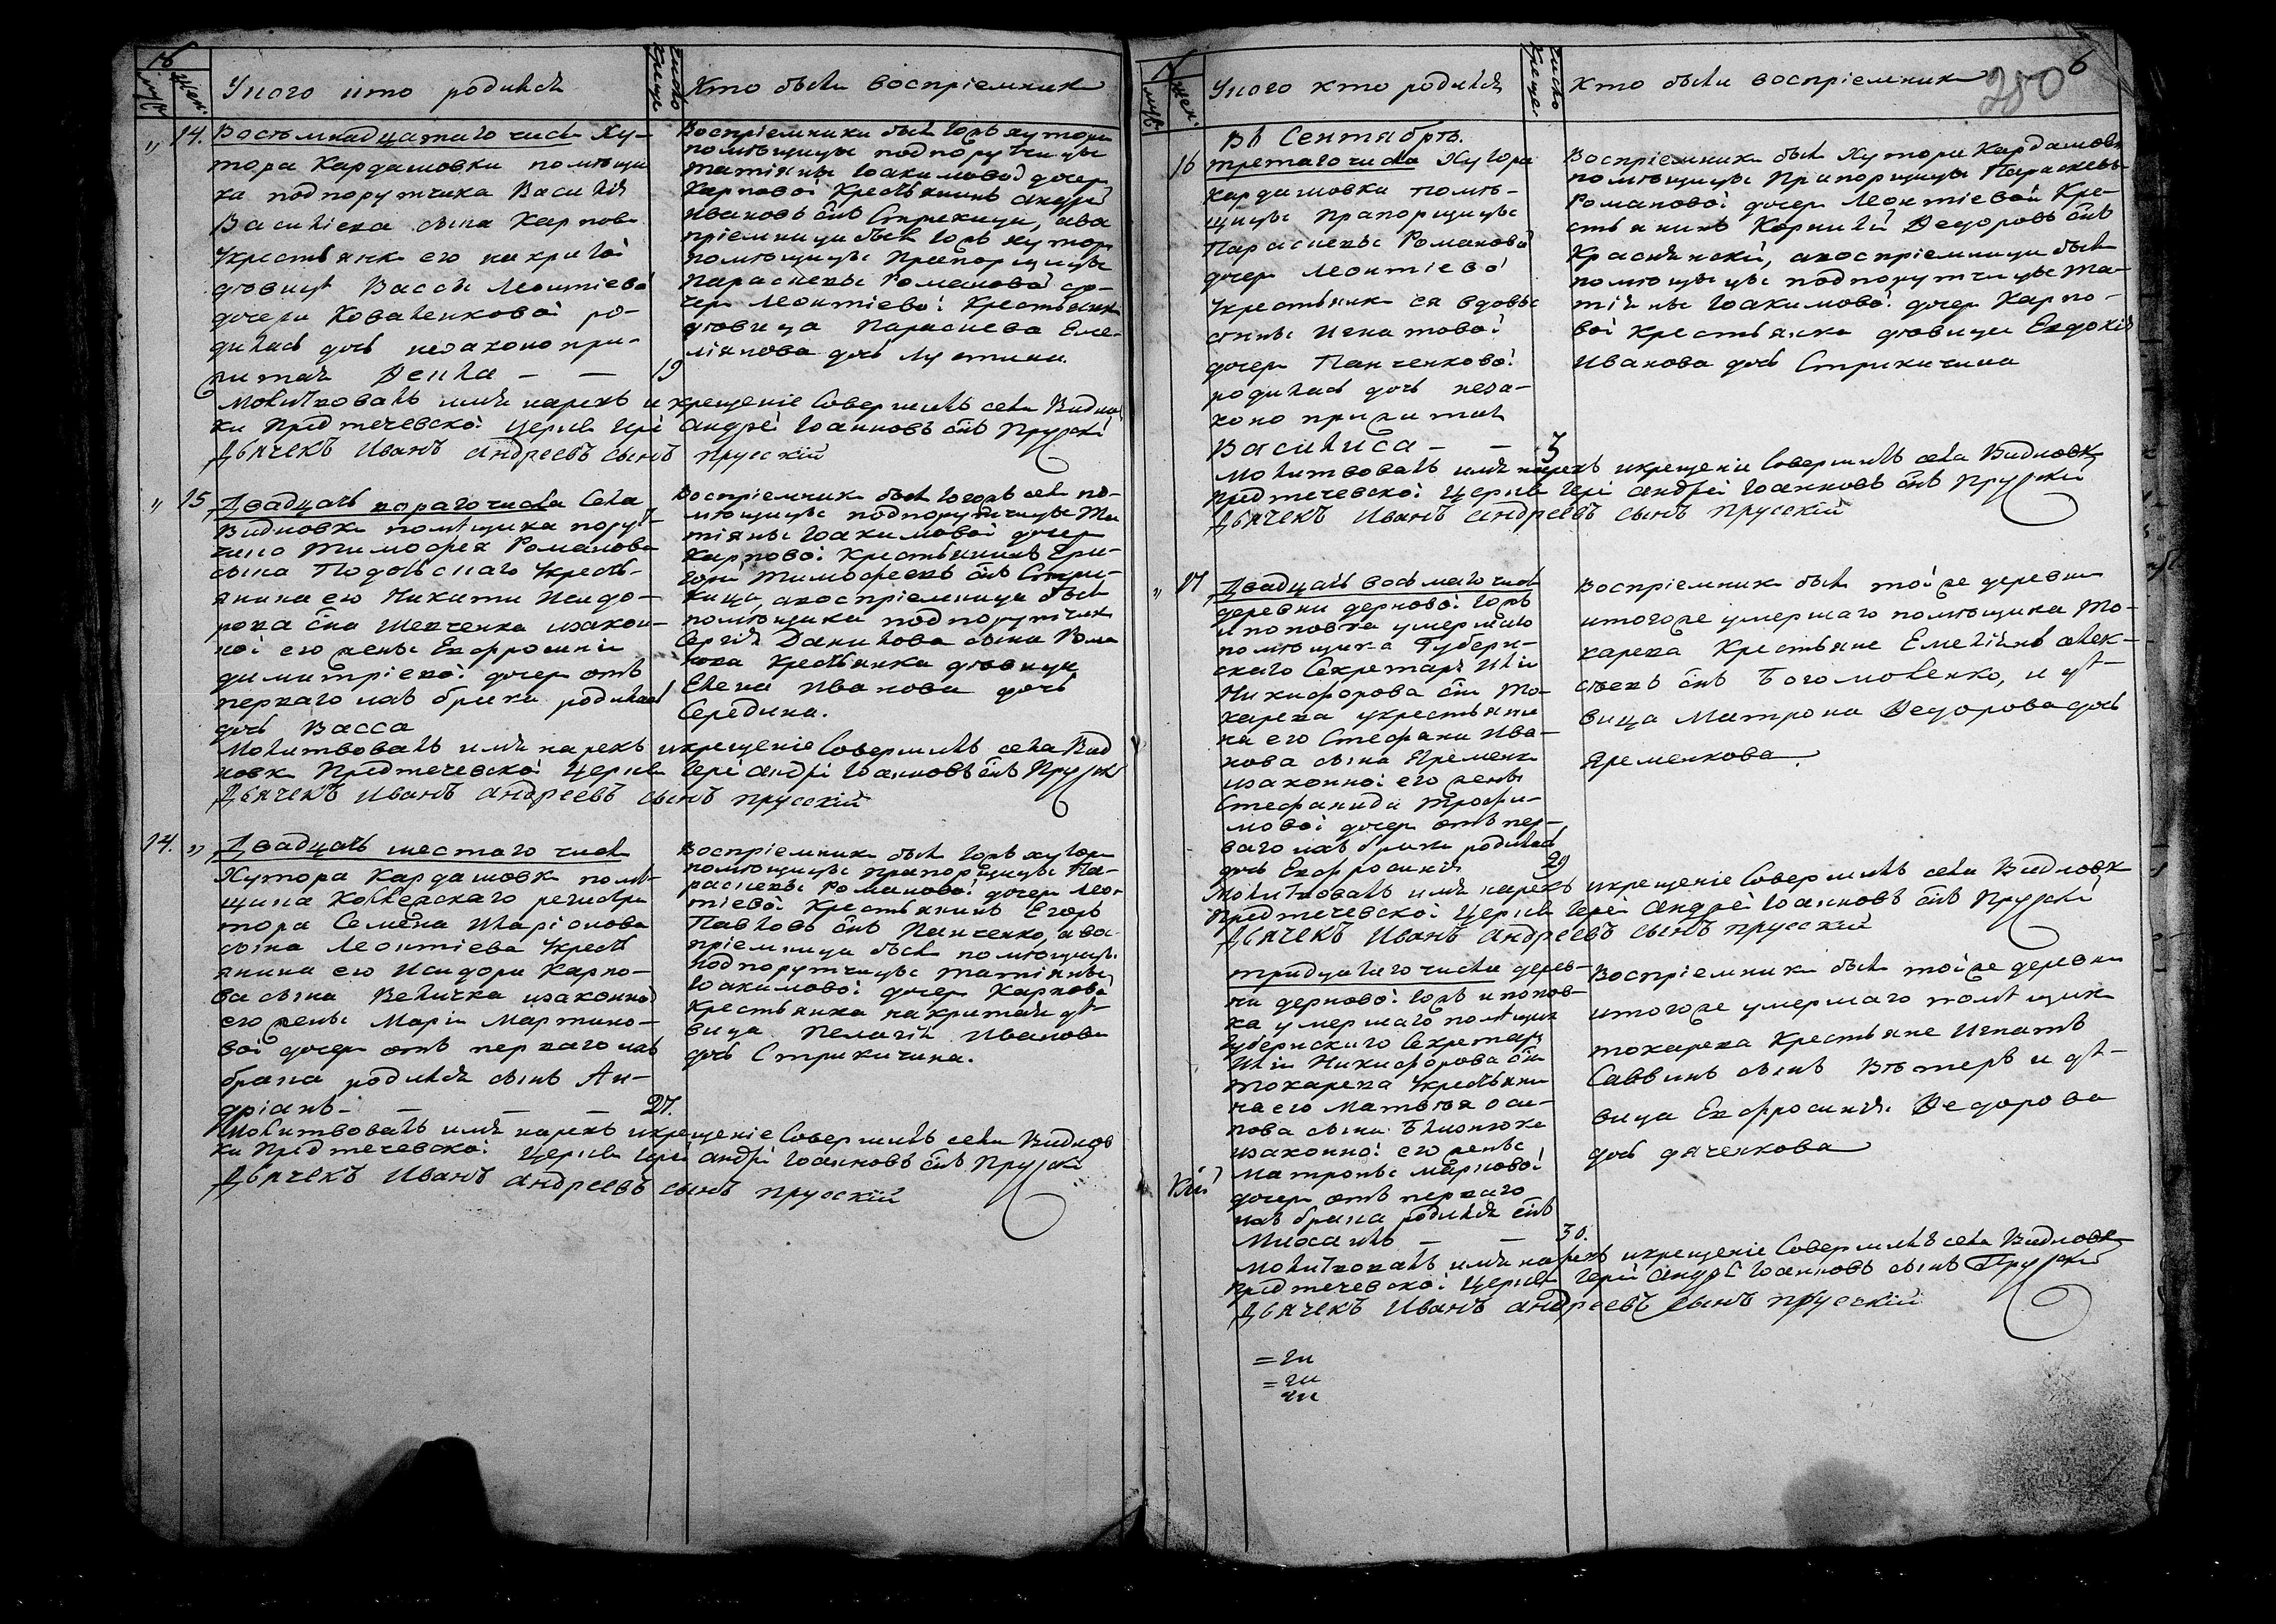 У кого кто родился
Число крещен.
Кто были воспріемники
" 14. Восъмнадцатаго числа Ху-
тора Кардашовки помѣщи
ка подпорутчика Василія
Василіева сына Карпова
Укрестьянк его накритой
дѣвици Вассы Леонтіевой
дочери Коваленковой ро-
дилась дочь незаконопри-
житая Ѳекла — — 19
Воспріемники былъ
помѣщицы подпорутчицы
Татіяны Іоакимовой дочер
Карповой Крестьянинъ Андрей
Ивановъ снъ Стрекица, авос
пріемници была хутор
помѣщицы Прапорщицы
Параскевы Романовой до-
чери Леонтіевой Крестьянка
дѣвица Параскева Еме-
ліянова дочь
Молитвовалъ имя нарекъ и крещеніе Совершилъ села Виднов
ки Предтечевской церкви Іерей Андрей Іоанновъ снъ Прускій
Дьячекъ Иванъ Андреевъ сынъ прусскій
" 15 Двадцать втораго числа Села
Видновки помѣщика порут-
чика Тимофея Романова
сына Подольскаго Укресть-
янина его Никити Исидо-
рова сна Шевченка изакон-
ной его жены Евфросиніи
Димитріевой дочер отъ
перваго ихъ брака родилась
дочь Васса
Воспріемники былъ села по-
мѣщицы подпорутчицы Та
тіяны Іоакимовой дочер
Карповой Крестьянинъ Гри-
горій Тимофеевъ снъ Стри-
кица, авоспріемница была
помѣщика подпорутчика
Сергія Данилова сына
Крестьянка дѣвица
Елена Иванова дочь
Середина.
Молитвовалъ имя нарекъ икрещеніе Совершилъ села Вид
новк Предтечевской Церкви Іерей Андрей Іоанновъ снъ Прускій
Дьячекъ Иванъ Андреевъ сынъ прусскій
14. " Двадцать шестаго числа
Хутора Кардашовк помѣ-
щика Коллежскаго регистра
тора Семена Иларіонова
сына Леонтіева Укресть
янина его Исидора Карпо-
ва сына Величка изаконной
его жены Маріи Мартино-
вой дочер отъ перваго ихъ
брака родился сынъ Ан-
дріанъ — — — 27.
Воспріемники былъ хутора
помѣщицы прапорщицы Па-
раскевы Романовой дочери Леон
тіевой Крестьянинъ Егоръ
Павловъ снъ Панченко, авос
пріемница была помѣщицы
подпорутчицы Татіяны
Іоакимовой дочер Карповой
Крестьянка накритая дѣ-
вица Пелагія Иванова
дочь Стрикичина.
Молитвовалъ имя нарекъ икрещеніе Совершилъ села Виднов
ки Предтечевской Церкви Іерей Андрей Іоанновъ снъ Прускій
Дьячекъ Иванъ Андреевъ сынъ прусскій
У кого кто родился
Число крещен.
Кто были воспріемники
280
6
Въ Сентябрѣ.
16 третаго числа Хутора
Кардашовки помѣ-
щицы Прапорщицы
Параскевы Романовой
дочери Леонтіевой
Укрестьянк ея вдовы
Анны Игнатовой
дочери Панченковой
родилась дочь неза-
коноприжитая
Василиса — — 3
Воспріемники былъ Хутора Кардашовк
помѣщицы Прапорщицы Параскевы
Романовой дочер Леонтіевой Кре-
стьянинъ Корнилій Ѳедоровъ снъ
Краснянскій, авоспріемница была
помѣщицы подпорутчицы Та-
тіяны Іоакимовой дочер Карпо-
вой Крестьянка дѣвица Евдокія
Иванова дочь Стрикичина
Молитвовалъ имя нарекъ икрещеніе Совершилъ села Видновк
Предтечевской Церкви Іерей Андрей Іоанновъ снъ Прускій
Дьячекъ Иванъ Андреевъ сынъ прусскій
" 17 Двадцать восьмаго числа
деревни дерновой
ипоповка умершаго
помѣщика Губерн-
скаго Секретаря Иліи
Никифорова сна То-
карева укрестьяни
на его Стефана Ива-
нова сына Яременка
изаконной его жены
Стефаниды Трофи-
мовой дочер отъ пер-
ваго ихъ брака родилась
дочь Евфросинія 29
Воспріемники были тойже деревни
итогоже умершаго помѣщика То-
карева Крестьяне Емеліянъ Алек-
сѣевъ снъ Богомоленко, и дѣ-
вица Матрона Ѳедорова дочь
Яременкова
Молитвовалъ имя нарекъ икрещеніе Совершилъ села Видновк
Предтечевской Церкви Іерей Андрей Іоанновъ снъ Прускій
Дьячекъ Иванъ Андреевъ сынъ прусскій
тридцатаго числа дерев-
ни дерновой ипопов-
ка умершаго помѣщика
Губернскаго Секретаря
Иліи Никифорова сна
Токарева Укрестьяни
на его Матвѣя Оси-
пова сына
изаконной его жены
Матроны Марковой
дочери отъ перваго
ихъ брака родился снъ
Михаилъ — — 30.
Воспріемники были тойже деревни
итогоже умершаго помѣщика
токарева Крестьяне Игнатъ
Саввинъ сынъ и дѣ-
вица Евфросинія Ѳедорова
дочь дяченкова
Молитвовалъ имя нарекъ икрещеніе Совершилъ села Видновк
Предтечевской Церкви Іерей Андрей Іоанновъ сынъ Прускій
Дьячекъ Иванъ Андреевъ сынъ прусскій